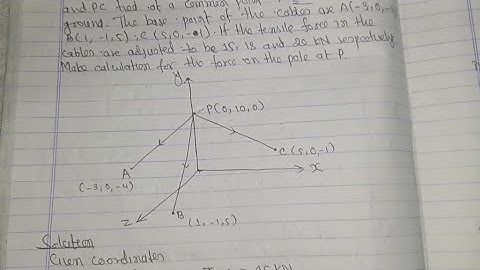 and PC tied at a common point
ground. The base point of the cables are A(-3,0,-
B(1,-1,5); C(5,0,-1). If the tensile force in the
cables are adjusted to be 15, 18 and 20 kN respectively
Make calculation for the force on the pole at P.
Y
P(0,10,0)
C(5,0,-1)
A
(-3,0,-4)
X
Z
B
(1,-1,5)
Solution
Given coordinates